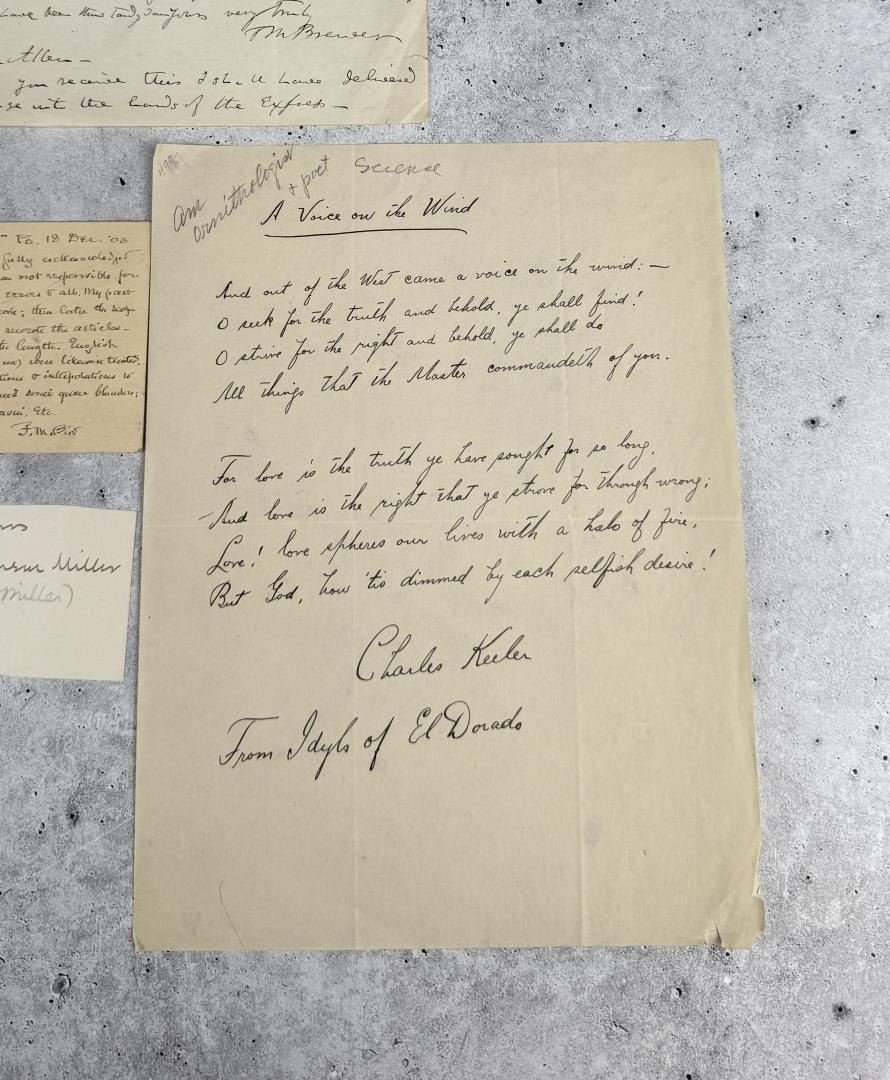 have been
very truly
T M Brewer
Allen —
you receive this I shall have delivered
into the hands of the Express —
Pa. 18 Dec. '03
fully acknowledged
am not responsible for
errors & all. My part
then later the
rewrote the articles —
length. English
interpolations to
some queer blunders;
Etc.
Miller
Miller)
Am
Ornithologist
& poet
Science
A Voice on the Wind
And out of the West came a voice on the wind: —
O seek for the truth and behold, ye shall find!
O strive for the right and behold, ye shall do
All things that the Master commandeth of you.
For love is the truth ye have sought for so long,
And love is the right that ye strove for through wrong;
Love! love spheres our lives with a halo of fire,
But God, how 'tis dimmed by each selfish desire!
Charles Keeler
From Idyls of El Dorado